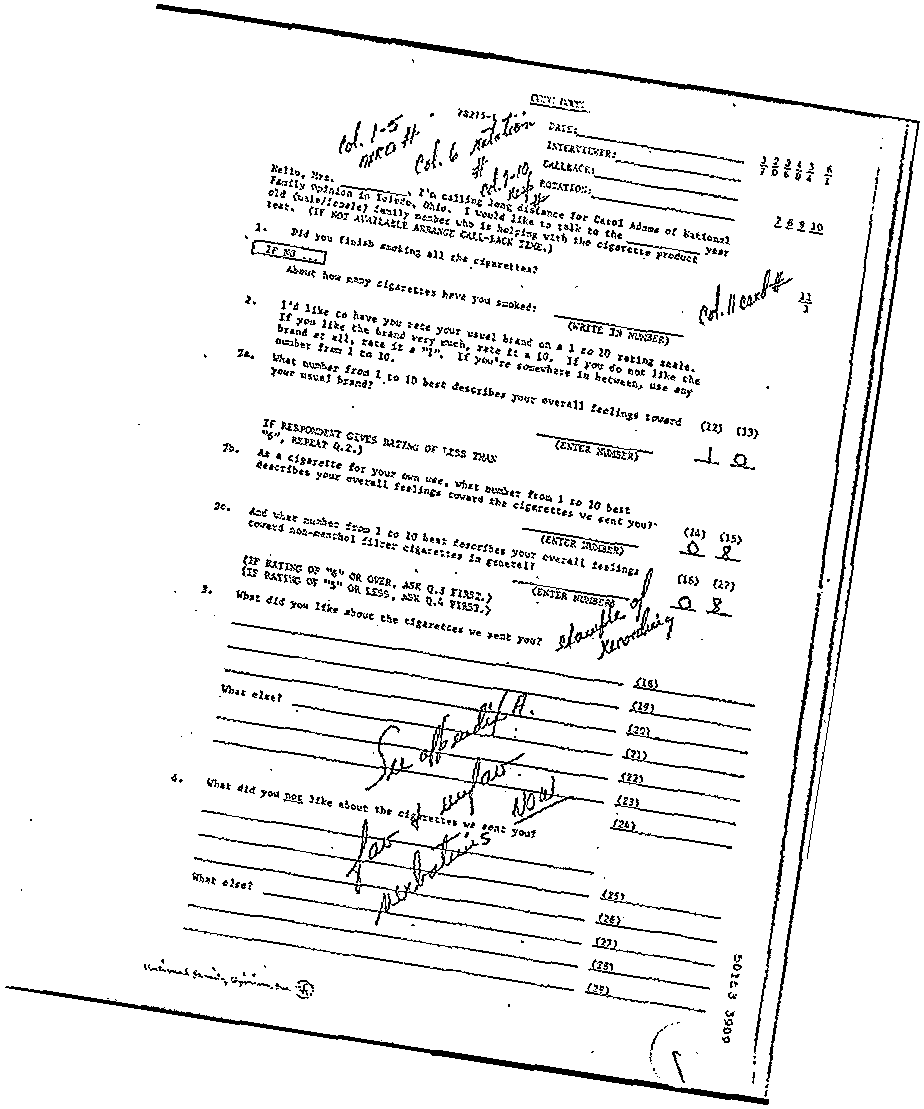 DATE:
INTERVIEWER:
CALLBACK:
ROTATION:
Col. 1-5
Col. 6 rotation
#
Col. 7-10
Resp #
7 8 9 10
Hello, Mrs. , I'm calling long distance for Carol Adams of National
Family Opinion in Toledo, Ohio. I would like to talk to the year
old (male/female) family member who is helping with the cigarette product
test. (IF NOT AVAILABLE ARRANGE CALL-BACK TIME.)
1. Did you finish smoking all the cigarettes?
IF NO ...
About how many cigarettes have you smoked:
(WRITE IN NUMBER)
Col. 11 card #
11
2. I'd like to have you rate your usual brand on a 1 to 10 rating scale.
If you like the brand very much, rate it a 10. If you do not like the
brand at all, rate it a "1". If you're somewhere in between, use any
number from 1 to 10.
2a. What number from 1 to 10 best describes your overall feelings toward
your usual brand?
(12) (13)
(ENTER NUMBER)
1 0
IF RESPONDENT GIVES RATING OF LESS THAN
"6", REPEAT Q.2.)
2b. As a cigarette for your own use, what number from 1 to 10 best
describes your overall feelings toward the cigarettes we sent you?
(14) (15)
(ENTER NUMBER)
0 8
2c. And what number from 1 to 10 best describes your overall feelings
toward non-menthol filter cigarettes in general?
(16) (17)
(ENTER NUMBER)
0 8
(IF RATING OF "6" OR OVER, ASK Q.3 FIRST.)
(IF RATING OF "5" OR LESS, ASK Q.4 FIRST.)
example of
recording
3. What did you like about the cigarettes we sent you?
(18)
(19)
What else?
(20)
(21)
(22)
(23)
(24)
See attached A.
fav + unfav.
Now
verbatims
4. What did you not like about the cigarettes we sent you?
(25)
What else?
(26)
(27)
(28)
(29)
National Family Opinion, Inc.
50123 3900